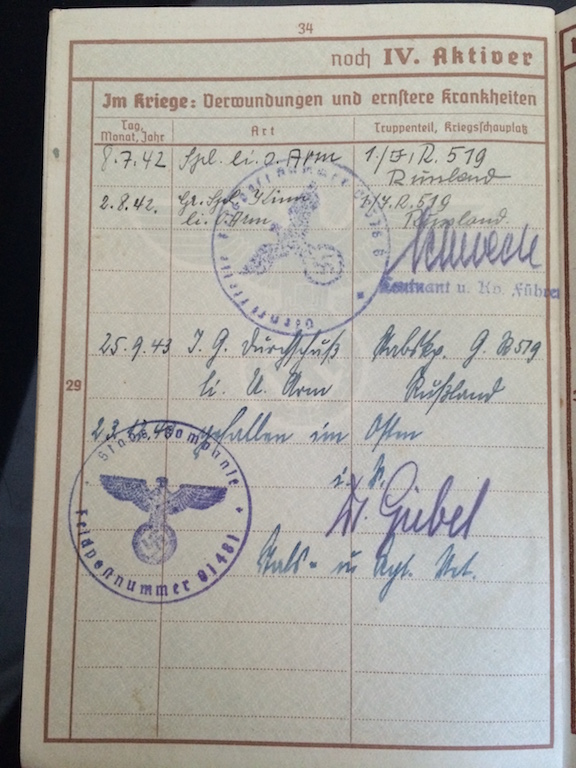 34
noch IV. Aktiver
Im Kriege: Verwundungen und ernstere Krankheiten
Tag, Monat, Jahr
Art
Truppenteil, Kriegsschauplatz
8.7.42 Spl. li. o. Arm 1./J. R. 519
Rußland
2.8.42. Gr. Spl. 1./J. R. 519
li. Arm Rußland
Leutnant u. Kp. Führer
25.9.43 I. G. Durchschuß Stabskp. G. R 519
li. U. Arm Rußland
29
gefallen im Osten
Stabs Kompanie
Feldpostnummer 01481
Dr. Giebel